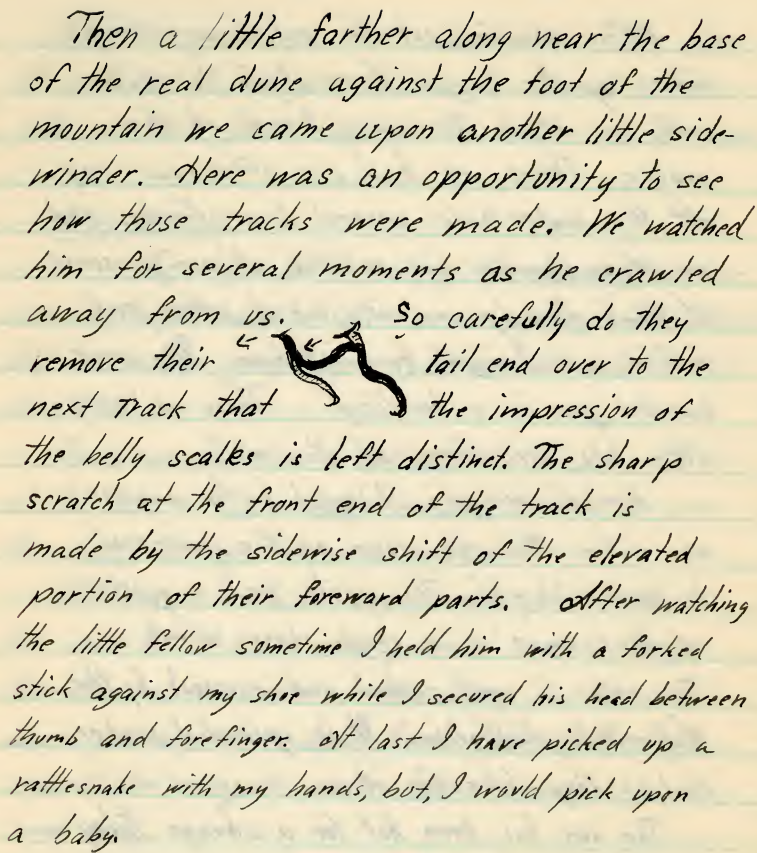 Then a little farther along near the base
of the real dune against the foot of the
mountain we came upon another little side-
winder. Here was an opportunity to see
how those tracks were made. We watched
him for several moments as he crawled
away from us. So carefully do they
remove their tail end over to the
next track that the impression of
the belly scalles is left distinct. The sharp
scratch at the front end of the track is
made by the sidewise shift of the elevated
portion of their foreward parts. After watching
the little fellow sometime I held him with a forked
stick against my shoe while I secured his head between
thumb and forefinger. At last I have picked up a
rattlesnake with my hands, but, I would pick upon
a baby.